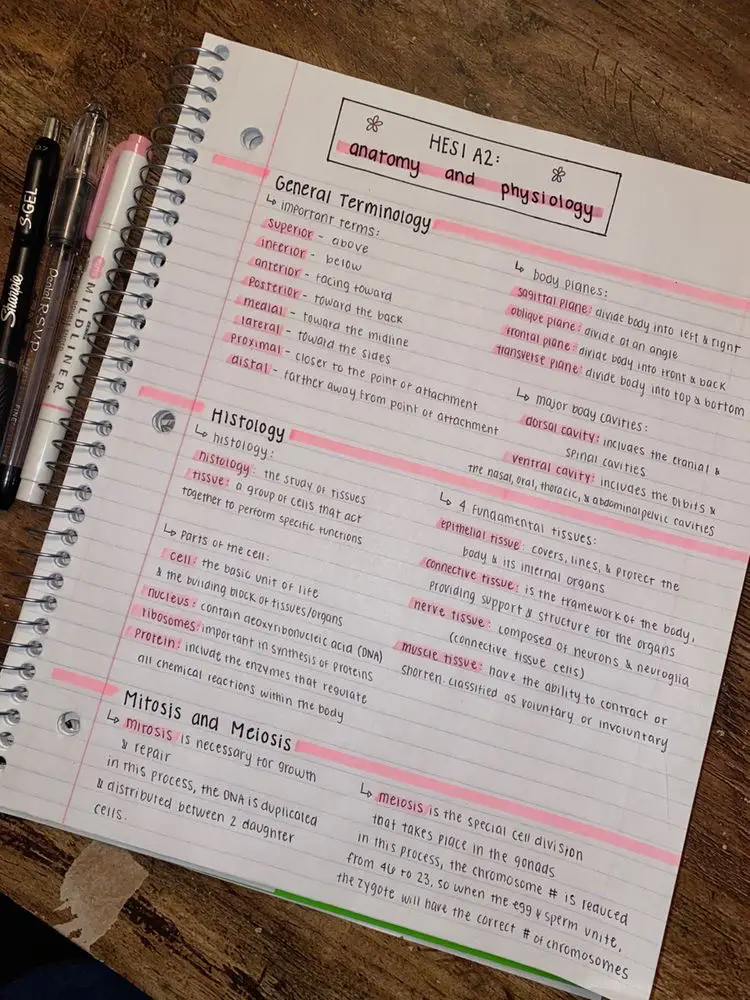 HESI A2:
anatomy and physiology
General Terminology
↳ important terms:
superior - above
inferior - below
anterior - facing toward
posterior - toward the back
medial - toward the midline
lateral - toward the sides
proximal - closer to the point of attachment
distal - farther away from point of attachment
↳ body planes:
sagittal plane: divide body into left & right
oblique plane: divide at an angle
frontal plane: divide body into front & back
transverse plane: divide body into top & bottom
↳ major body cavities:
dorsal cavity: includes the cranial &
spinal cavities
ventral cavity: includes the orbits &
the nasal, oral, thoracic, & abdominalpelvic cavities
Histology
↳ histology:
histology: the study of tissues
tissue: a group of cells that act
together to perform specific functions
↳ parts of the cell:
cell: the basic unit of life
& the building block of tissues/organs
nucleus: contain deoxyribonucleic acid (DNA)
ribosomes: important in synthesis of proteins
protein: include the enzymes that regulate
all chemical reactions within the body
↳ 4 fundamental tissues:
epithelial tissue: covers, lines, & protect the
body & its internal organs
connective tissue: is the framework of the body,
providing support & structure for the organs
nerve tissue: composed of neurons & neuroglia
(connective tissue cells)
muscle tissue: have the ability to contract or
shorten. classified as voluntary or involuntary
Mitosis and Meiosis
↳ mitosis is necessary for growth
& repair
in this process, the DNA is duplicated
& distributed between 2 daughter
cells.
↳ meiosis is the special cell division
that takes place in the gonads
in this process, the chromosome # is reduced
from 46 to 23, so when the egg & sperm unite,
the zygote will have the correct # of chromosomes
Sharpie S·GEL 0.7
Pentel R.S.V.P. FINE
MILDLINER